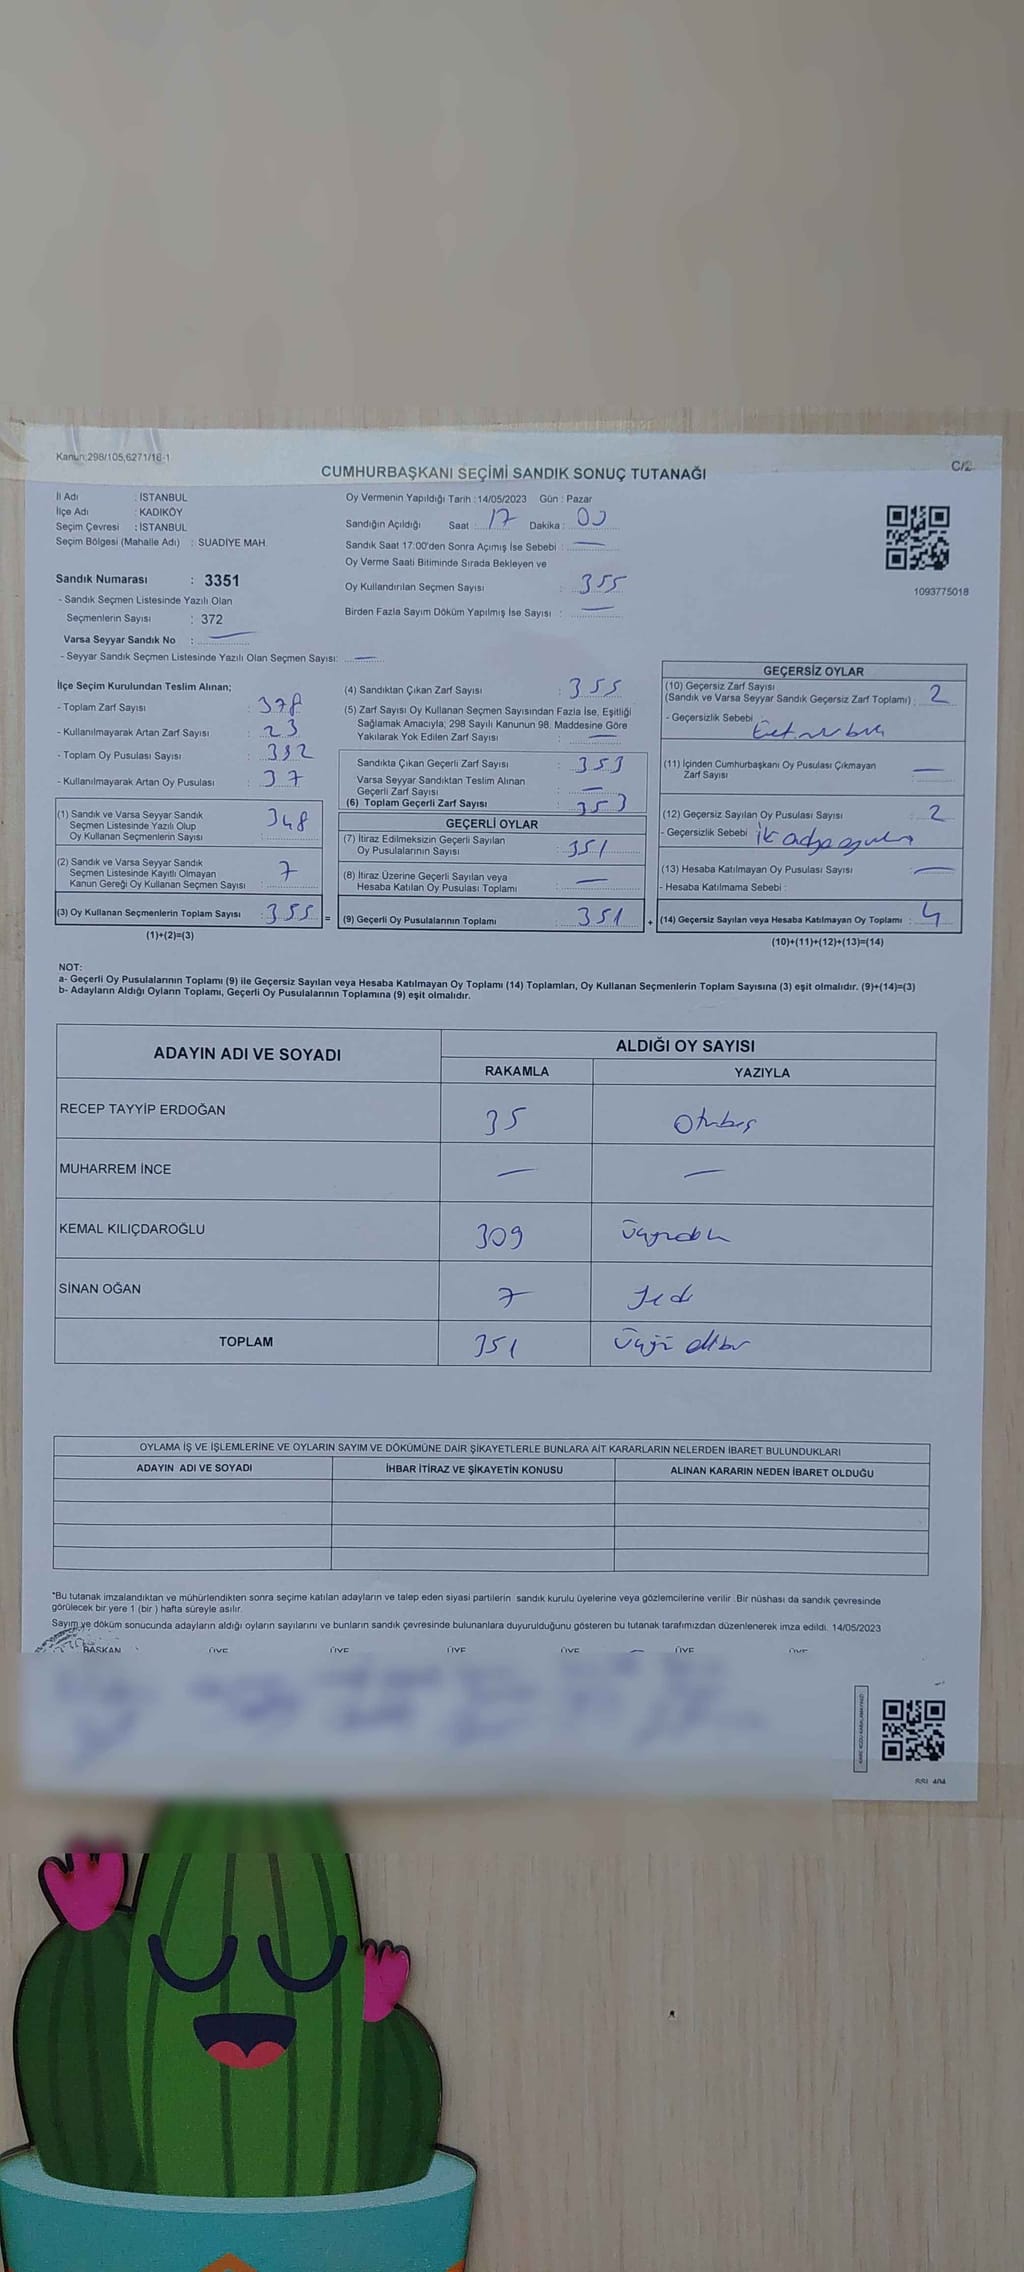 Kanun:298/105,6271/16-1
C/2
CUMHURBAŞKANI SEÇİMİ SANDIK SONUÇ TUTANAĞI
İl Adı : İSTANBUL
İlçe Adı : KADIKÖY
Seçim Çevresi : İSTANBUL
Seçim Bölgesi (Mahalle Adı) : SUADİYE MAH.
Sandık Numarası : 3351
- Sandık Seçmen Listesinde Yazılı Olan
Seçmenlerin Sayısı : 372
Varsa Seyyar Sandık No : —
- Seyyar Sandık Seçmen Listesinde Yazılı Olan Seçmen Sayısı: —
Oy Vermenin Yapıldığı Tarih : 14/05/2023 Gün : Pazar
Sandığın Açıldığı Saat : 17 Dakika : 00
Sandık Saat 17:00'den Sonra Açımış İse Sebebi : —
Oy Verme Saati Bitiminde Sırada Bekleyen ve
Oy Kullandırılan Seçmen Sayısı : 355
Birden Fazla Sayım Döküm Yapılmış İse Sayısı : —
1093775018
İlçe Seçim Kurulundan Teslim Alınan;
- Toplam Zarf Sayısı : 378
- Kullanılmayarak Artan Zarf Sayısı : 23
- Toplam Oy Pusulası Sayısı : 392
- Kullanılmayarak Artan Oy Pusulası : 37
(1) Sandık ve Varsa Seyyar Sandık
Seçmen Listesinde Yazılı Olup
Oy Kullanan Seçmenlerin Sayısı : 348
(2) Sandık ve Varsa Seyyar Sandık
Seçmen Listesinde Kayıtlı Olmayan
Kanun Gereği Oy Kullanan Seçmen Sayısı : 7
(3) Oy Kullanan Seçmenlerin Toplam Sayısı : 355 =
(1)+(2)=(3)
(4) Sandıktan Çıkan Zarf Sayısı : 355
(5) Zarf Sayısı Oy Kullanan Seçmen Sayısından Fazla İse, Eşitliği
Sağlamak Amacıyla; 298 Sayılı Kanunun 98. Maddesine Göre
Yakılarak Yok Edilen Zarf Sayısı : —
Sandıkta Çıkan Geçerli Zarf Sayısı : 353
Varsa Seyyar Sandıktan Teslim Alınan
Geçerli Zarf Sayısı : —
(6) Toplam Geçerli Zarf Sayısı : 353
GEÇERLİ OYLAR
(7) İtiraz Edilmeksizin Geçerli Sayılan
Oy Pusulalarının Sayısı : 351
(8) İtiraz Üzerine Geçerli Sayılan veya
Hesaba Katılan Oy Pusulası Toplamı : —
(9) Geçerli Oy Pusulalarının Toplamı : 351 +
GEÇERSİZ OYLAR
(10) Geçersiz Zarf Sayısı
(Sandık ve Varsa Seyyar Sandık Geçersiz Zarf Toplamı) : 2
- Geçersizlik Sebebi :
(11) İçinden Cumhurbaşkanı Oy Pusulası Çıkmayan
Zarf Sayısı : —
(12) Geçersiz Sayılan Oy Pusulası Sayısı : 2
- Geçersizlik Sebebi :
(13) Hesaba Katılmayan Oy Pusulası Sayısı : —
- Hesaba Katılmama Sebebi :
(14) Geçersiz Sayılan veya Hesaba Katılmayan Oy Toplamı : 4
(10)+(11)+(12)+(13)=(14)
NOT:
a- Geçerli Oy Pusulalarının Toplamı (9) ile Geçersiz Sayılan veya Hesaba Katılmayan Oy Toplamı (14) Toplamları, Oy Kullanan Seçmenlerin Toplam Sayısına (3) eşit olmalıdır. (9)+(14)=(3)
b- Adayların Aldığı Oyların Toplamı, Geçerli Oy Pusulalarının Toplamına (9) eşit olmalıdır.
ADAYIN ADI VE SOYADI
ALDIĞI OY SAYISI
RAKAMLA YAZIYLA
RECEP TAYYİP ERDOĞAN 35 Otuzbeş
MUHARREM İNCE — —
KEMAL KILIÇDAROĞLU 309
SİNAN OĞAN 7 Yedi
TOPLAM 351
OYLAMA İŞ VE İŞLEMLERİNE VE OYLARIN SAYIM VE DÖKÜMÜNE DAİR ŞİKAYETLERLE BUNLARA AİT KARARLARIN NELERDEN İBARET BULUNDUKLARI
ADAYIN ADI VE SOYADI İHBAR İTİRAZ VE ŞİKAYETİN KONUSU ALINAN KARARIN NEDEN İBARET OLDUĞU
*Bu tutanak imzalandıktan ve mühürlendikten sonra seçime katılan adayların ve talep eden siyasi partilerin sandık kurulu üyelerine veya gözlemcilerine verilir. Bir nüshası da sandık çevresinde
görülecek bir yere 1 (bir ) hafta süreyle asılır.
Sayım ve döküm sonucunda adayların aldığı oyların sayılarını ve bunların sandık çevresinde bulunanlara duyurulduğunu gösteren bu tutanak tarafımızdan düzenlenerek imza edildi. 14/05/2023
BAŞKAN ÜYE ÜYE ÜYE ÜYE ÜYE ÜYE